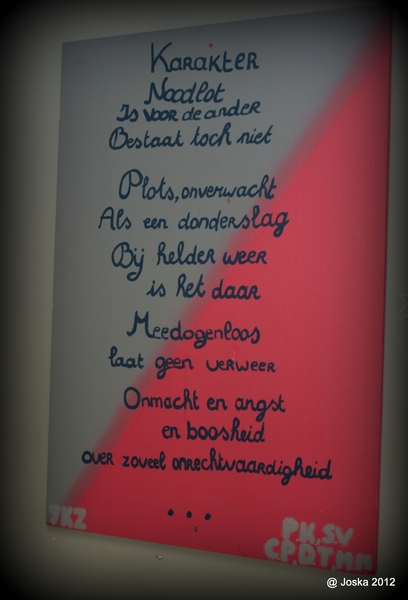 KARAKTER
Noodlot
Is VOOR de ander
Bestaat toch niet
Plots, onverwacht
Als een donderslag
Bij helder weer
is het daar
Meedogenloos
laat geen verweer
Onmacht en angst
en boosheid
over zoveel onrechtvaardigheid
...
PK, SV
@ Joska 2012